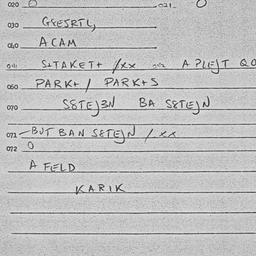 020 0 021 0
030 GEESRTL,
040 ACAM
041 S+TAKET+ /xx 042 A PLEJT
050 PARK+ / PARK+S
070 S8TEJ3N BA S8TEJN
071 -BUT BAN S8TEJN / xx
072 0
A FELD
KARIK